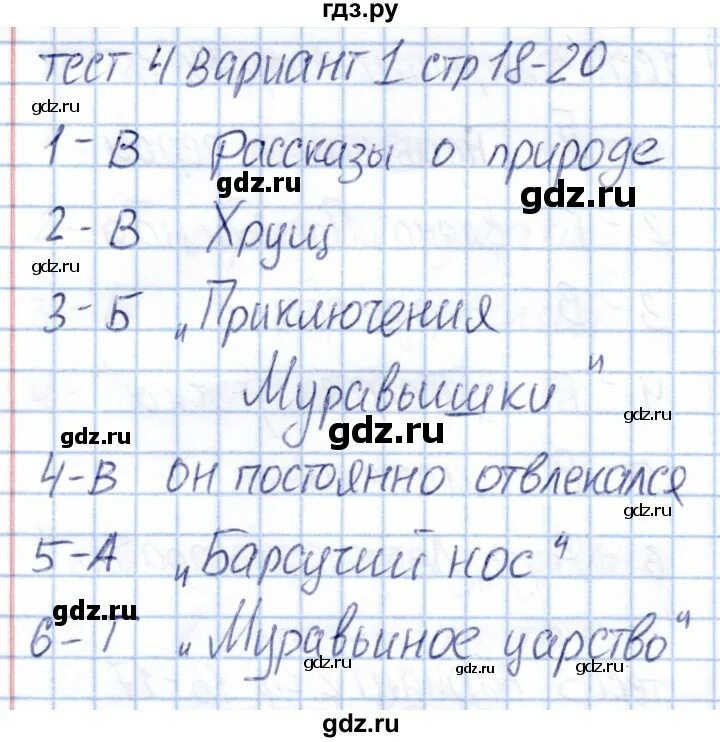 гдз.ру
тест 4 вариант 1 стр 18-20
gdz.ru
1-В Рассказы о природе
gdz.ru
gdz.ru
2-В Хрущ
gdz.ru
3-Б „Приключения
Муравьишки"
gdz.ru
gdz.ru
gdz.ru
4-В он постоянно отвлекался
gdz.ru
5-А „Барсучий нос"
gdz.ru
6-Г „Муравьиное царство"
gdz.ru
gdz.ru
gdz.ru